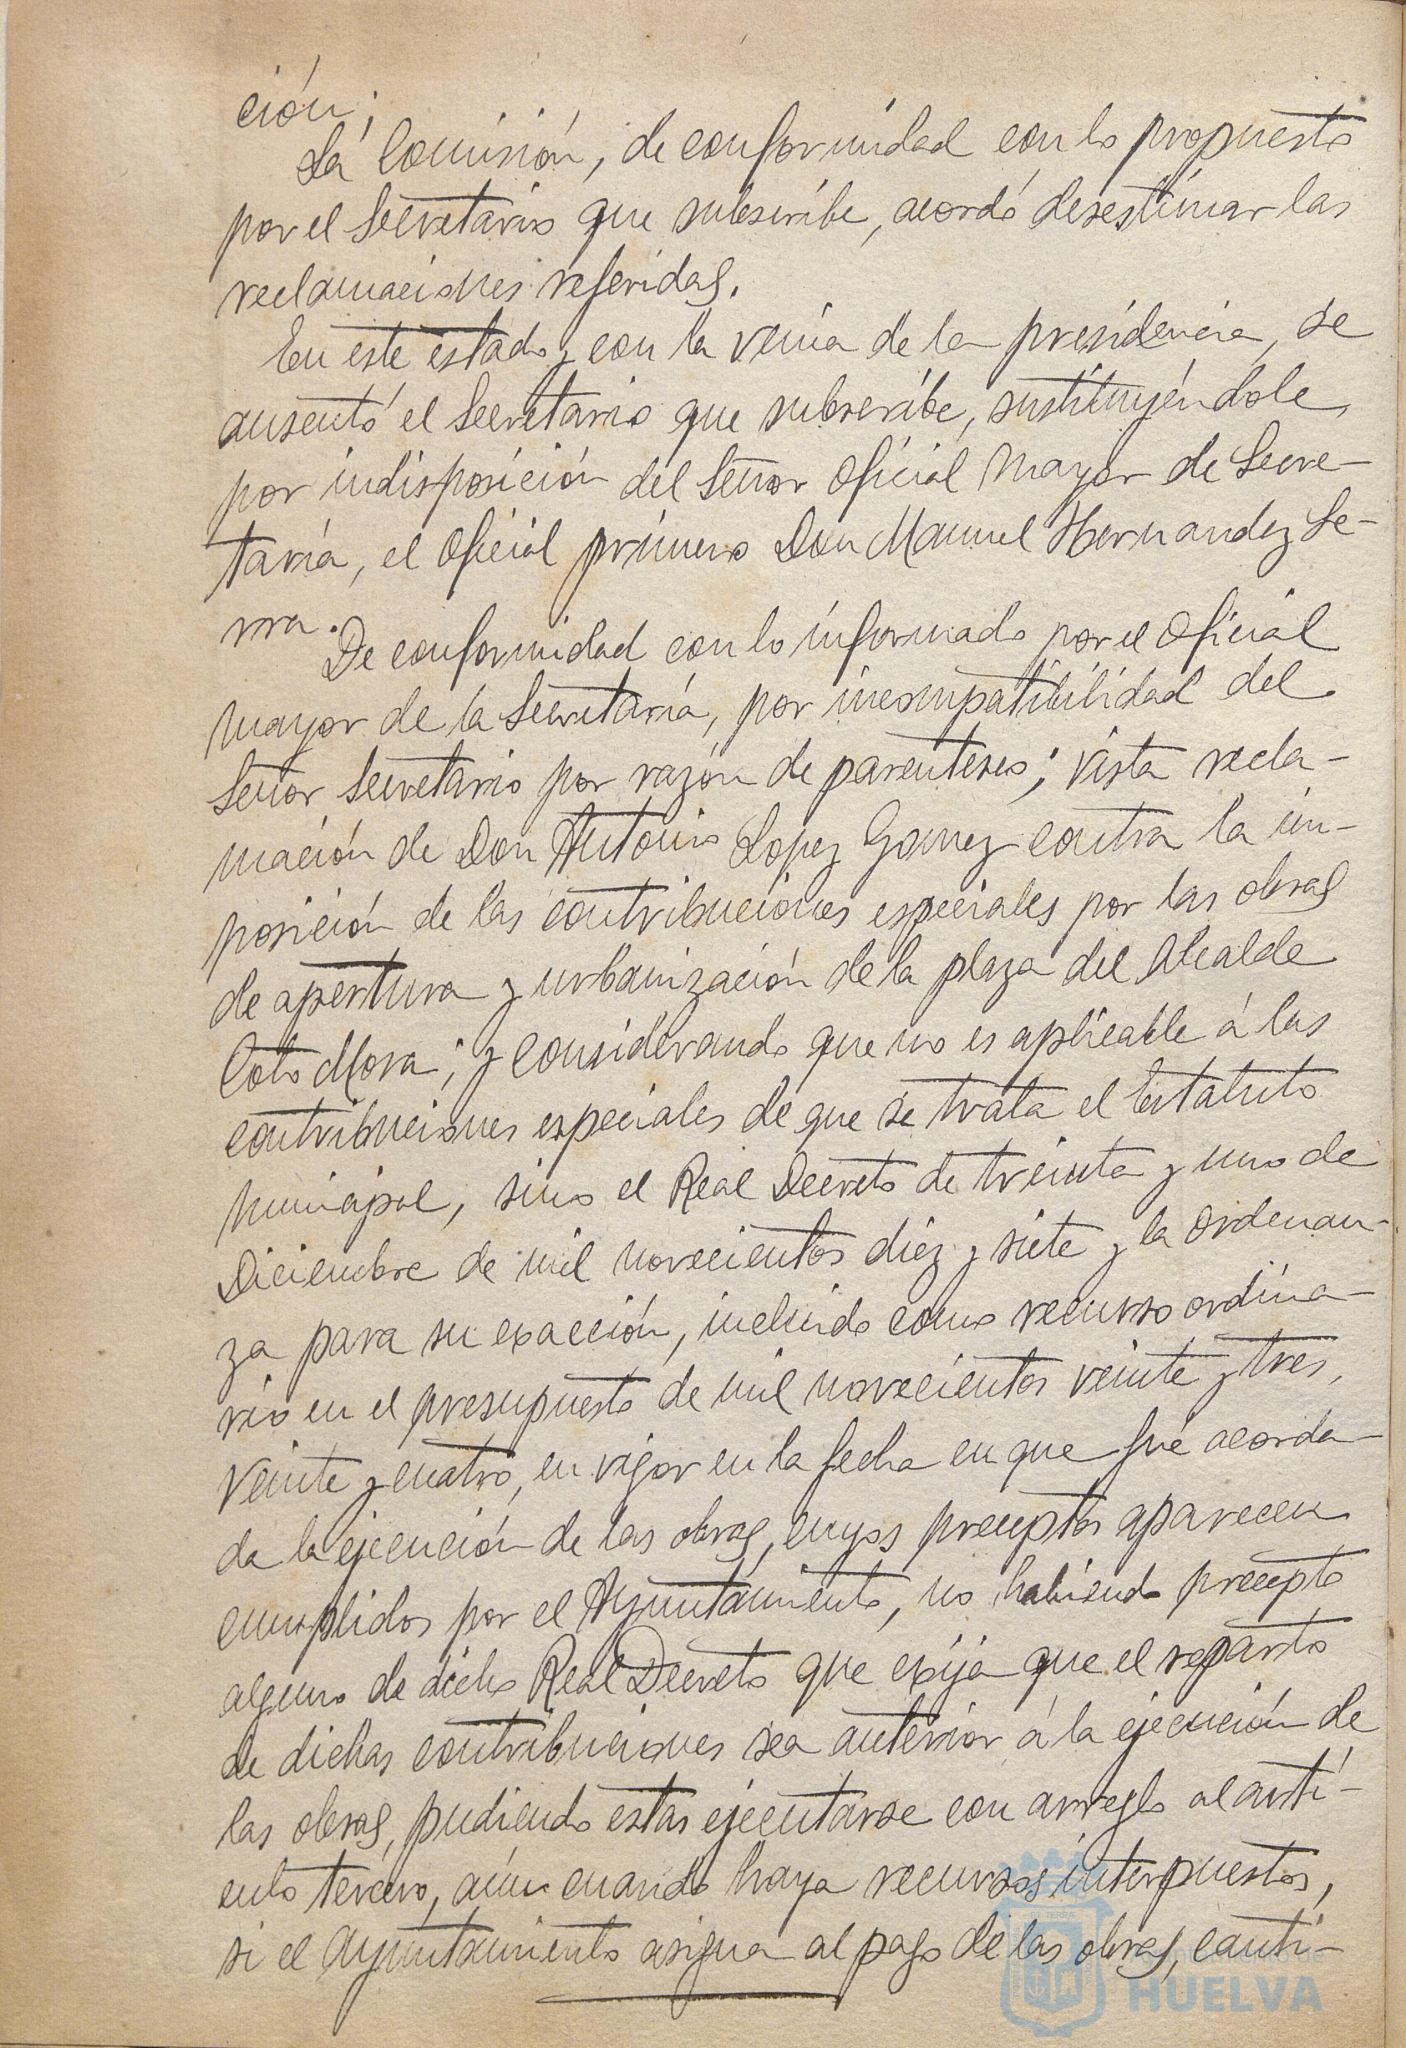 ción;
La Comisión, de conformidad con lo propuesto
por el Secretario que subscribe, acordó desestimar las
reclamaciones referidas.
En este estado y con la venia de la presidencia, se
ausentó el Secretario que subscribe, sustituyéndole,
por indisposición del Señor Oficial Mayor de Secre-
taría, el Oficial primero Don Manuel Hernandez Se-
rra.
De conformidad con lo informado por el Oficial
mayor de la Secretaría, por incompatibilidad del
Señor Secretario por razón de parentesco; vista recla-
mación de Don Antonio Lopez Gomez contra la im-
posición de las contribuciones especiales por las obras
de apertura y urbanización de la plaza del Alcalde
Coto Mora; y considerando que no es aplicable á las
contribuciones especiales de que se trata el Estatuto
municipal, sino el Real Decreto de treinta y uno de
Diciembre de mil novecientos diez y siete y la ordenan-
za para su exacción, incluido como recurso ordina-
rio en el presupuesto de mil novecientos veinte y tres,
veinte y cuatro, en vigor en la fecha en que fué acorda-
da la ejecución de las obras, cuyos preceptos aparecen
cumplidos por el Ayuntamiento, no habiendo precepto
alguno de dicho Real Decreto que exija que el reparto
de dichas contribuciones sea anterior á la ejecución de
las obras, pudiendo estas ejecutarse con arreglo al artí-
culo tercero, aún cuando haya recursos interpuestos,
si el Ayuntamiento asigna al pago de las obras, canti-
Ayuntamiento de
HUELVA